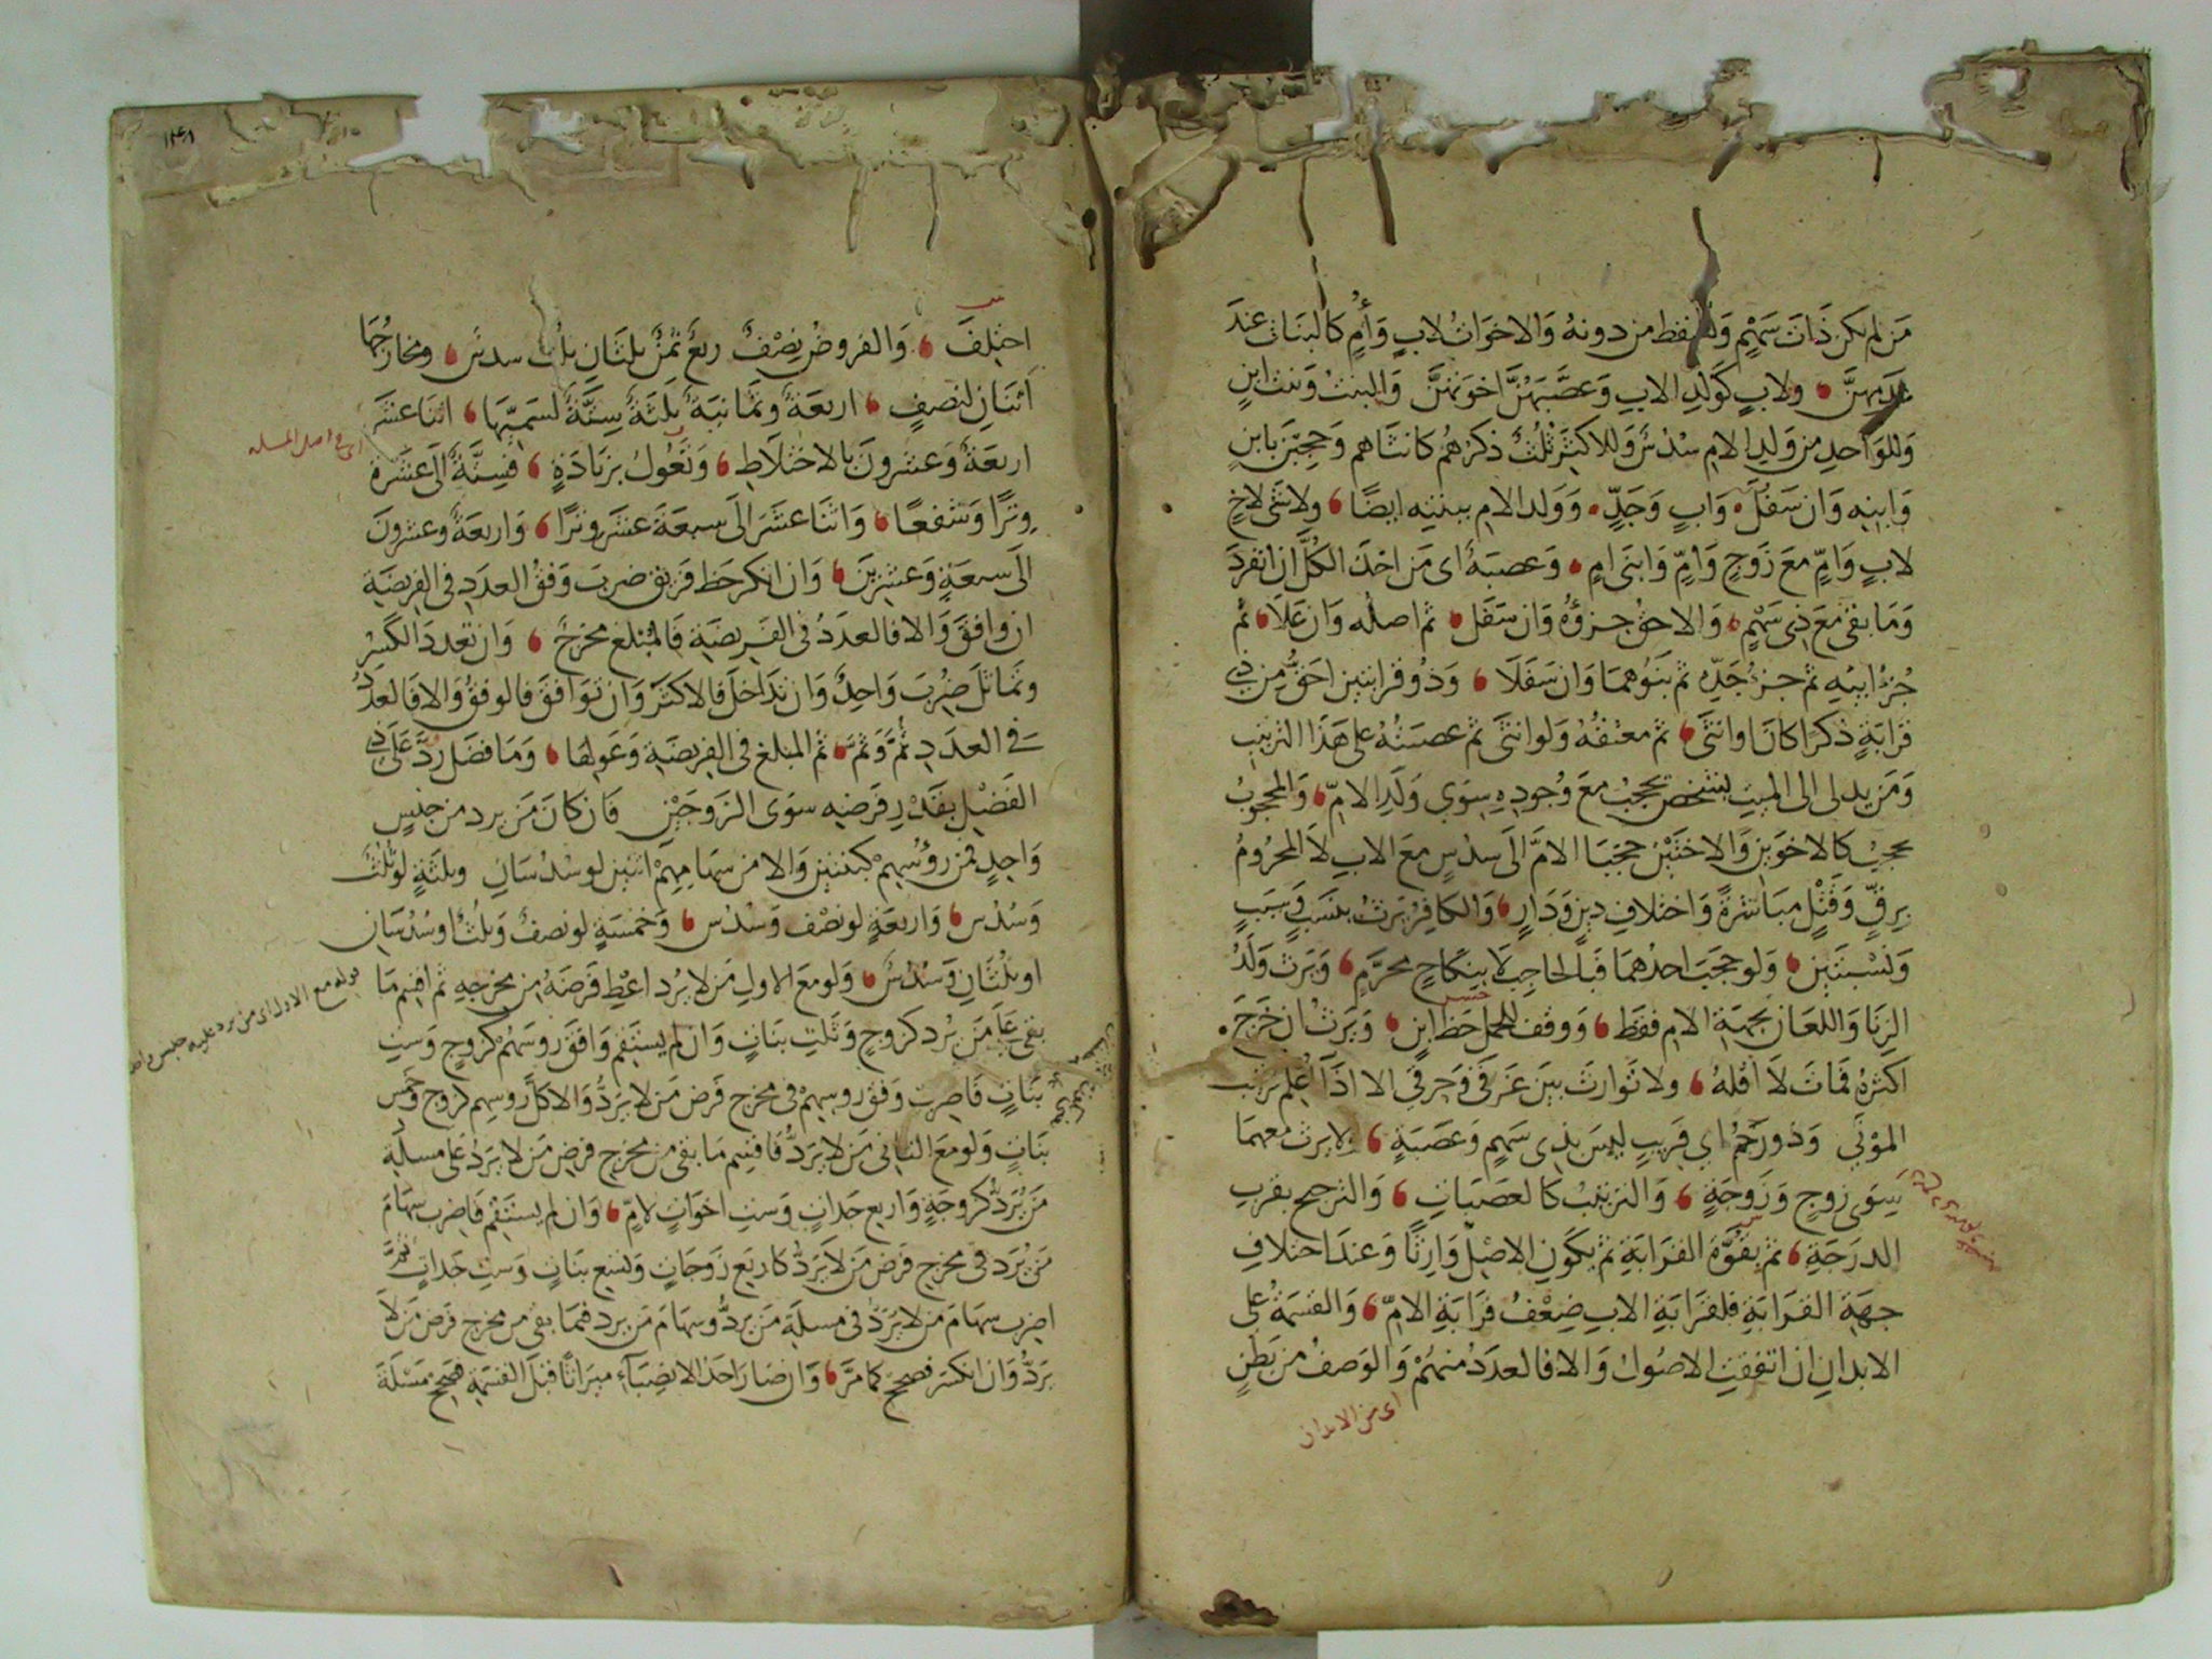 مَن لم يكن ذَاتَ سَهْمٍ وتسقط من دونه وَالاخَوَاتُ لابٍ وَأُمٍ كَالبَنَاتِ عندَ
عَدَمِهِنَّ ولابٍ كَولَدِ الابنِ وَعَصَّبَهُنَّ اخوَتهُنَّ وَالبنتُ وَبنت ابنٍ
وَللوَاحِدِ من وَلَدِ الام سُدُسٌ وَللاكثَرِ ثُلُثٌ ذكرُهُم كانثَاهم وَحُجِبْنَ بابنٍ
وَابنِه وَان سَفُلَ وَابٍ وَجَدٍّ وَوَلد الام ببنتٍ ايضًا ولانثى لاخٍ
لابٍ وَامٍّ مَعَ زَوجٍ وَامٍّ وَابنَى امٍ وَعصبَةً اى مَن اخذَ الكُلَّ ان انفَردَ
وَمَا بقى مَعَ ذِى سَهْمٍ وَالاحق جزؤُهُ وَان سَفَل ثم اصلُه وَان عَلَا ثم
جُزْءُ ابيْهِ ثم جزءُ جَدِّه ثم بَنوُهمَا وَان سَفَلَا وَذُو قرابتين احَقُّ مِن ذى
قرَابَةٍ ذكرًا كانَ او انثَى ثم معتقُهُ وَلو انثَى ثم عصبَتُهُ على هَذا الترتيب
وَمَن يدلى الى الميتِ بشخص يُحجَبُ مَعَ وُجودِهِ سِوَى وَلَدِ الامّ وَالمحجوبُ
يحجبُ كالاخوَينِ وَالاختَيْنِ حجبَا الامَّ الَى سدُسٍ معَ الابِ لَا المحرُومُ
بِرقٍّ وَقَتْلٍ مبَاشرَةً وَاختلافِ دِينٍ وَدَارٍ وَالكافِرُ يَرثُ بنَسَبٍ وَسَبَبٍ
وَنسْبتَينِ وَلو حجَبَ احدُهمَا فبالحَاجِبِ لَا بِنِكَاحِ محرَّمٍ وَيَرثُ وَلَدُ
الزِنَا وَاللعَانِ بجهَةِ الامِ فقَط وَوقفَ للحَمل حَظُّ ابنٍ وَيَرثُ ان خَرَجَ
اكثرُهُ فمَاتَ لَا اقلهُ ولا تَوارثَ بينَ غَرقَى وَحرقَى الا اذَا عُلِمَ ترتيب
الموتَى وَذو رَحْمٍ اى قَريبٍ ليسَ بذِى سَهْمٍ وَعَصَبَةٍ لا يرث معهمَا
سِوَى زوجٍ وَزَوجَةٍ وَالترتيبُ كالعصَبَاتِ وَالترجيح بقربِ
الدرَجَةِ ثم بقُوَّة القرَابَةِ ثم بكَونِ الاصْلِ وَارِثًا وَعندَ اختلافِ
جهَةِ القرَابَةِ فلقرَابَةِ الابِ ضِعْفُ قرَابَةِ الامّ وَالقسمَةُ على
الابدانِ ان اتفقتِ الاصُولُ وَالا فالعدَدُ منهُمْ وَالوَصفُ من بَطنٍ
اى من الابدان
١٣٤٨
اختلفَ وَالفروضُ نِصْفٌ ربعٌ ثمنٌ ثلثَان ثلث سدسٌ ومخارجُهَا
اثنَانِ لنصفٍ اربعَةٌ وثمَانيَةٌ ثلثَةٌ سِتَّةٌ لسَمِيِّهَا اثنَا عشَرَ
اى فى اصل المسئلة
اربعَةٌ وَعشرُونَ بالاختلَاطِ وَتَعُولُ بزيَادَةٍ فسِتَّةٌ الى عَشَرَةٍ
وِترًا وَشفعًا وَاثنَا عشَرَ الَى سبعَةَ عشَر وِترًا وَاربعَةٌ وعشرونَ
الَى سبعَةٍ وَعشرِينَ وَان انكسر حَظ فَريق ضرِبَ وَفقُ العدَدِ فى الفريضَةِ
ان وافَقَ وَالا فالعدَدُ فى الفَريضَةِ فَالمبْلغ مخرَجٌ وَان تعددَ الكَسْرُ
وتماثَلَ ضُرِبَ وَاحِدٌ وَان تَدَاخَلَ فالاكثرَ وَان توَافقَ فالوفقُ وَالا فالعدَدُ
فى العدَدِ ثُمَّ وَثمَّ ثم المبلغ فى الفريضَةِ وَعَولِهَا وَمَا فضَلَ ردَّ عَلَى ذى
الفَرْضِ بقَدْرِ فَرضهِ سوَى الزَوجَيْنِ فان كانَ مَن يرد من جنسٍ
وَاحِدٍ فمن رؤُسهِمْ كبنتين وَالا من سهَامِهِمْ اثنين لو سُدُسَانِ وثلثَةٍ لو ثُلُثٌ
وَسُدُس وَاربعَةٍ لو نصْف وَسُدُس وَخمسَةٍ لو نصفٌ وَثلُثٌ او سُدُسَانِ
او ثلُثَانِ وَسُدُسٌ وَلو مَعَ الاولِ مَن لا يُرد اعْطِ فَرضَهُ من مخرجِهِ ثم اقسِم مَا
بقى عَلَى مَن يُرد كزوجٍ وَثلثِ بنَاتٍ وَان لم يستقِم وَافقَ روسَهُمْ كزوجٍ وَستِ
بنَاتٍ فاضرِبْ وَفقَ روسهِمْ فى مخرجِ فَرض مَن لا يَردُّ وَالا كلَّ روسِهم كزوجٍ وَخمسِ
بنَاتٍ وَلو مَعَ الثانى مَن لا يَردُّ فاقسِم مَا بقى من مخرجِ فرضِ مَن لا يَردُّ على مسئلةِ
مَن يُرَدُّ كزوجَةٍ وَاربعِ جَدَاتٍ وَستِ اخوَاتٍ لامٍّ وَان لم يستقم فاضرِب سهَامَ
مَن يُرَد فى مخرجِ فَرض مَن لَا يَردُّ كاربَعِ زَوجَاتٍ وَتسعِ بنَاتٍ وَستِ جَداتٍ ثمَّ
اضرِب سهَامَ من لا يَرَدُّ فى مسئلَةِ مَن يَردُّ وسهَامَ مَن يرد فيمَا بقى من مخرجِ فَرضِ مَن لَا
يَردُّ وَان انكسَر فصحِّحْ كما مَرَّ وَان صَارَ احَدُ الانصِبَاءِ ميرَاثًا قبلَ القسمَةِ فصحِّحْ مسْئلَةَ